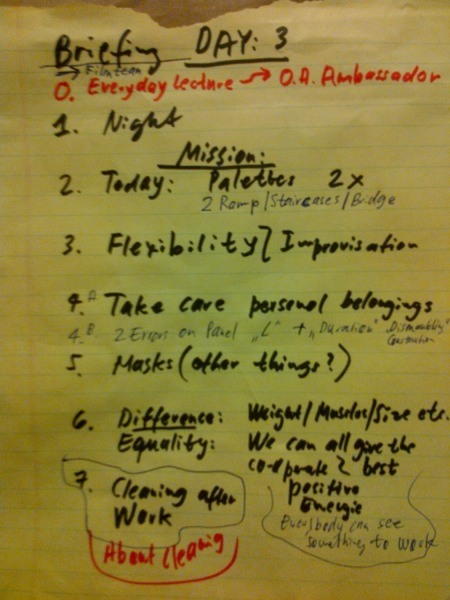 Briefing DAY: 3
→ Filmteam
0. Everyday lecture → O.A. Ambassador
1. Night
Mission:
2. Today: Palettes 2x
2 Ramp/Staircases/Bridge
3. Flexibility } Improvisation
4.A Take care personal belongings
4.B 2 Errors on Panel „L“ + „Duration“ Dismantling
Construction
5. Masks (other things?)
6. Difference: Weight/Muscles/Size etc.
Equality: We can all give the
best
positive
Energie
Everybody can see
something to work
7. Cleaning after
Work
About cleaning